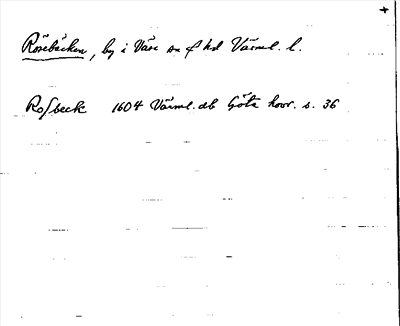 Rösebäcken, by i Väse sn o f hd Värml. l.
Rosbeck 1604 Värml. db Göta hovr. s. 36